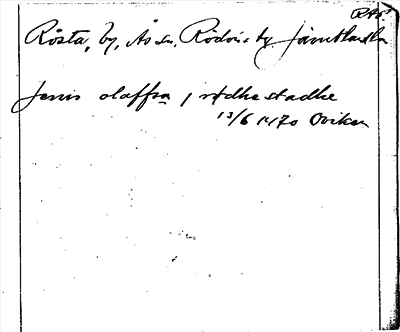 RAp
Rösta, by, Ås sn, Rödöns tg Jämtlands la
Jenis olaffson j rødhestadhe
13/6 1470 Oviken